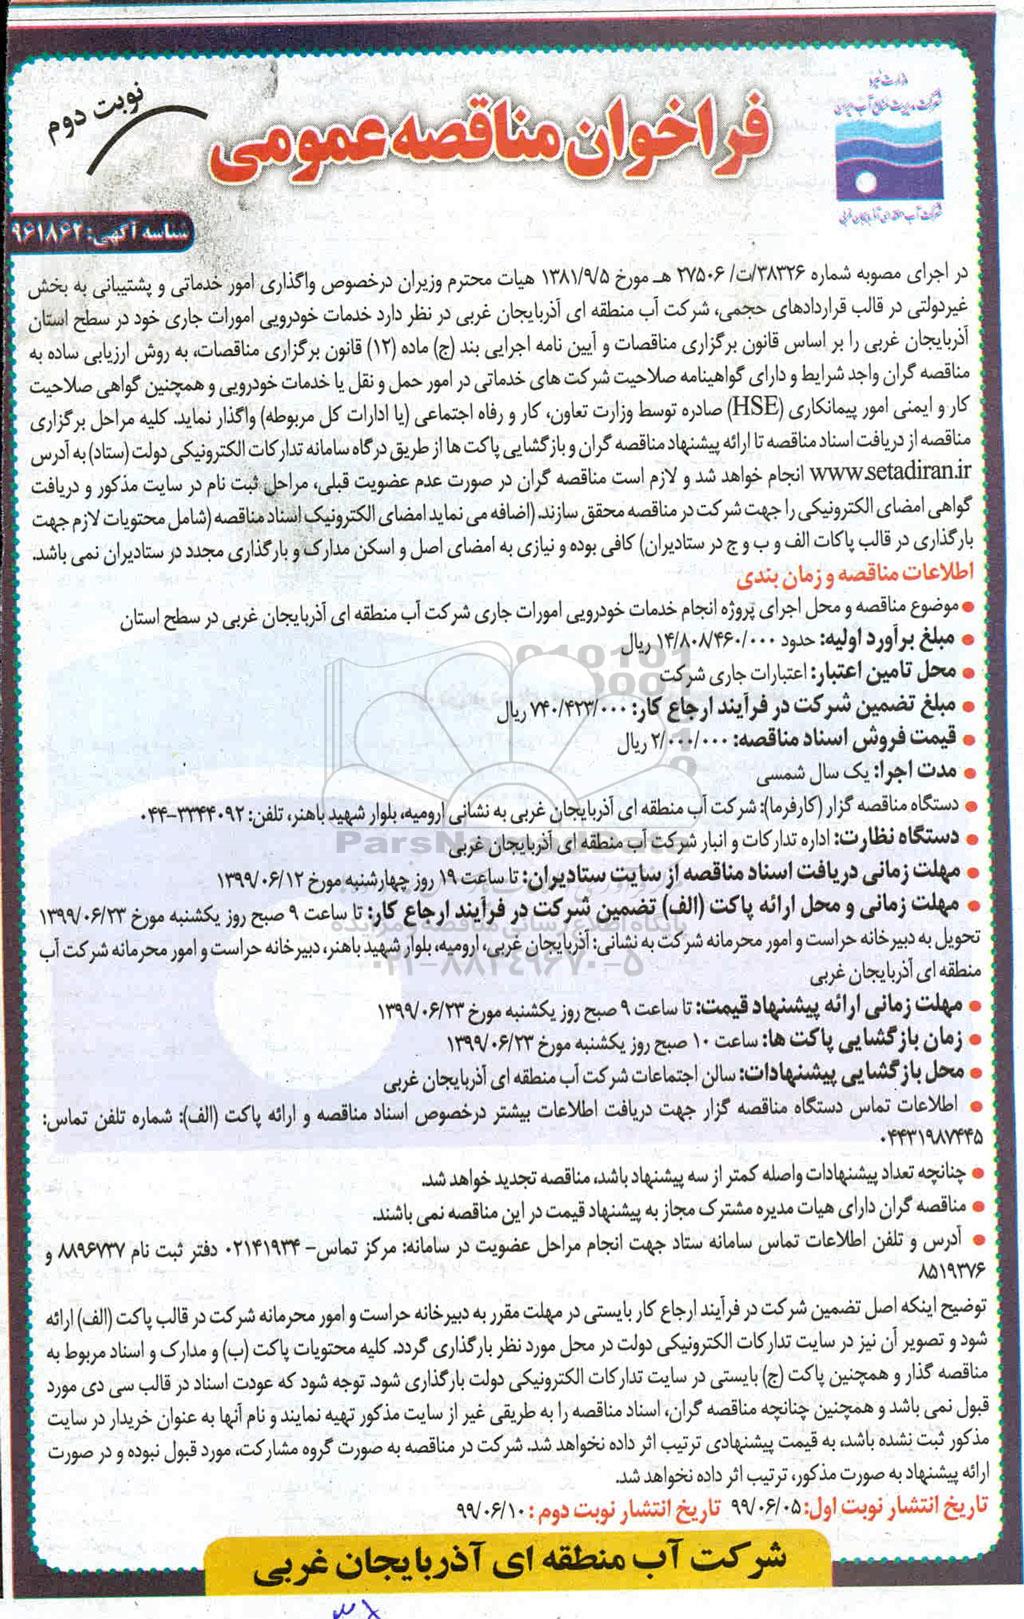 وزارت نیرو
شرکت مدیریت منابع آب ایران
شرکت آب منطقه ای آذربایجان غربی
نوبت دوم
فراخوان مناقصه عمومی
شناسه آگهی: ۹۶۱۸۶۲
در اجرای مصوبه شماره ۳۸۳۲۶/ت/ ۲۷۵۰۶ هـ مورخ ۱۳۸۱/۹/۵ هیات محترم وزیران درخصوص واگذاری امور خدماتی و پشتیبانی به بخش
غیردولتی در قالب قراردادهای حجمی، شرکت آب منطقه ای آذربایجان غربی در نظر دارد خدمات خودرویی امورات جاری خود در سطح استان
آذربایجان غربی را بر اساس قانون برگزاری مناقصات و آیین نامه اجرایی بند (ج) ماده (۱۲) قانون برگزاری مناقصات، به روش ارزیابی ساده به
مناقصه گران واجد شرایط و دارای گواهینامه صلاحیت شرکت های خدماتی در امور حمل و نقل یا خدمات خودرویی و همچنین گواهی صلاحیت
کار و ایمنی امور پیمانکاری (HSE) صادره توسط وزارت تعاون، کار و رفاه اجتماعی (یا ادارات کل مربوطه) واگذار نماید. کلیه مراحل برگزاری
مناقصه از دریافت اسناد مناقصه تا ارائه پیشنهاد مناقصه گران و بازگشایی پاکت ها از طریق درگاه سامانه تدارکات الکترونیکی دولت (ستاد) به آدرس
www.setadiran.ir انجام خواهد شد و لازم است مناقصه گران در صورت عدم عضویت قبلی، مراحل ثبت نام در سایت مذکور و دریافت
گواهی امضای الکترونیکی را جهت شرکت در مناقصه محقق سازند. (اضافه می نماید امضای الکترونیک اسناد مناقصه (شامل محتویات لازم جهت
بارگذاری در قالب پاکات الف و ب و ج در ستادیران) کافی بوده و نیازی به امضای اصل و اسکن مدارک و بارگذاری مجدد در ستادیران نمی باشد.
اطلاعات مناقصه و زمان بندی
● موضوع مناقصه و محل اجرای پروژه انجام خدمات خودرویی امورات جاری شرکت آب منطقه ای آذربایجان غربی در سطح استان
● مبلغ برآورد اولیه: حدود ۱۴/۸۰۸/۴۶۰/۰۰۰ ریال
● محل تامین اعتبار: اعتبارات جاری شرکت
● مبلغ تضمین شرکت در فرآیند ارجاع کار: ۷۴۰/۴۲۳/۰۰۰ ریال
● قیمت فروش اسناد مناقصه: ۲/۰۰۰/۰۰۰ ریال
● مدت اجرا: یک سال شمسی
● دستگاه مناقصه گزار (کارفرما): شرکت آب منطقه ای آذربایجان غربی به نشانی ارومیه، بلوار شهید باهنر، تلفن: ۳۳۴۴۰۹۲-۰۴۴
● دستگاه نظارت: اداره تدارکات و انبار شرکت آب منطقه ای آذربایجان غربی
● مهلت زمانی دریافت اسناد مناقصه از سایت ستادیران: تا ساعت ۱۹ روز چهارشنبه مورخ ۱۳۹۹/۰۶/۱۲
● مهلت زمانی و محل ارائه پاکت (الف) تضمین شرکت در فرآیند ارجاع کار: تا ساعت ۹ صبح روز یکشنبه مورخ ۱۳۹۹/۰۶/۲۳
تحویل به دبیرخانه حراست و امور محرمانه شرکت به نشانی: آذربایجان غربی، ارومیه، بلوار شهید باهنر، دبیرخانه حراست و امور محرمانه شرکت آب
منطقه ای آذربایجان غربی
● مهلت زمانی ارائه پیشنهاد قیمت: تا ساعت ۹ صبح روز یکشنبه مورخ ۱۳۹۹/۰۶/۲۳
● زمان بازگشایی پاکت ها: ساعت ۱۰ صبح روز یکشنبه مورخ ۱۳۹۹/۰۶/۲۳
● محل بازگشایی پیشنهادات: سالن اجتماعات شرکت آب منطقه ای آذربایجان غربی
● اطلاعات تماس دستگاه مناقصه گزار جهت دریافت اطلاعات بیشتر درخصوص اسناد مناقصه و ارائه پاکت (الف): شماره تلفن تماس:
۰۴۴۳۱۹۸۷۴۴۵
● چنانچه تعداد پیشنهادات واصله کمتر از سه پیشنهاد باشد، مناقصه تجدید خواهد شد.
● مناقصه گران دارای هیات مدیره مشترک مجاز به پیشنهاد قیمت در این مناقصه نمی باشند.
● آدرس و تلفن اطلاعات تماس سامانه ستاد جهت انجام مراحل عضویت در سامانه: مرکز تماس- ۰۲۱۴۱۹۳۴ دفتر ثبت نام ۸۸۹۶۷۳۷ و
۸۵۱۹۳۷۶
توضیح اینکه اصل تضمین شرکت در فرآیند ارجاع کار بایستی در مهلت مقرر به دبیرخانه حراست و امور محرمانه شرکت در قالب پاکت (الف) ارائه
شود و تصویر آن نیز در سایت تدارکات الکترونیکی دولت در محل مورد نظر بارگذاری گردد. کلیه محتویات پاکت (ب) و مدارک و اسناد مربوط به
مناقصه گذار و همچنین پاکت (ج) بایستی در سایت تدارکات الکترونیکی دولت بارگذاری شود. توجه شود که عودت اسناد در قالب سی دی مورد
قبول نمی باشد و همچنین چنانچه مناقصه گران، اسناد مناقصه را به طریقی غیر از سایت مذکور تهیه نمایند و نام آنها به عنوان خریدار در سایت
مذکور ثبت نشده باشد، به قیمت پیشنهادی ترتیب اثر داده نخواهد شد. شرکت در مناقصه به صورت گروه مشارکت، مورد قبول نبوده و در صورت
ارائه پیشنهاد به صورت مذکور، ترتیب اثر داده نخواهد شد.
تاریخ انتشار نوبت اول: ۹۹/۰۶/۰۵ تاریخ انتشار نوبت دوم : ۹۹/۰۶/۱۰
شرکت آب منطقه ای آذربایجان غربی
ParsNamadData
۰۲۱-۸۸۳۴۹۶۷۰-۵